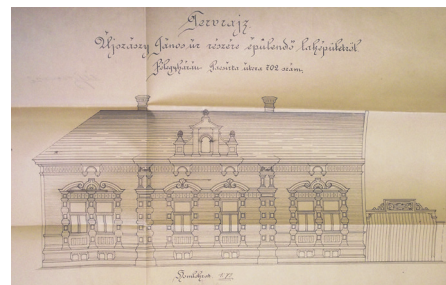 Tervrajz
Ujszászy János úr részére épülendő laképületről
Félegyházán Kossuth utcza 202 szám.
Homlokzat